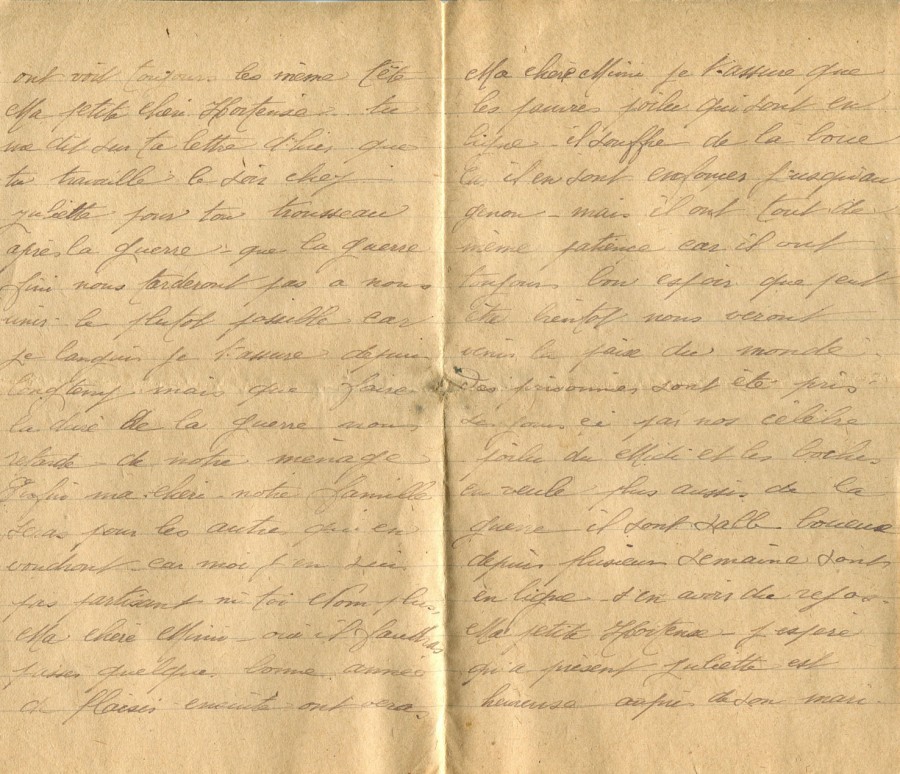 ont voit toujours les même tête
Ma petite chéri Hortense tu
me dit sur ta lettre d'hier que
tu travaille le soir chez
Juliette pour ton trousseau
après la guerre - que la guerre
fini nous tarderont pas a nous
unir le plutot possible car
je languis je t'assure depuis
longtemp mais que faire
la duré de la guerre nous
retarde de notre ménage
Enfin ma chéri notre famille
seras pour les autre qui en
voudront car moi j'en suis
pas partisant ni toi Nom plus
Ma chère Mimi - oui il faudras
passer quelque bonne année
de plaisir ensuite ont veras
Ma chère Mimi je t'assure que
les pauvres poilu qui sont en
ligne il souffre de la boue
il en sont enfoncer jusqu'au
genou - mais il ont tout de
même patience car il ont
toujours bon espoir que peut
être bientot nous veront
venir la paix du monde
Des prisonnier sont été pris
ses jours ci par nos célèbre
poilu du Midi et les boches
en veule plus aussi de la
guerre il sont salle boueux
depuis plusieur semaine sont
en ligne s'en avoir du repos
Ma petite Hortense j'espere
qu'a présent Juliette est
heureuse auprès de son mari